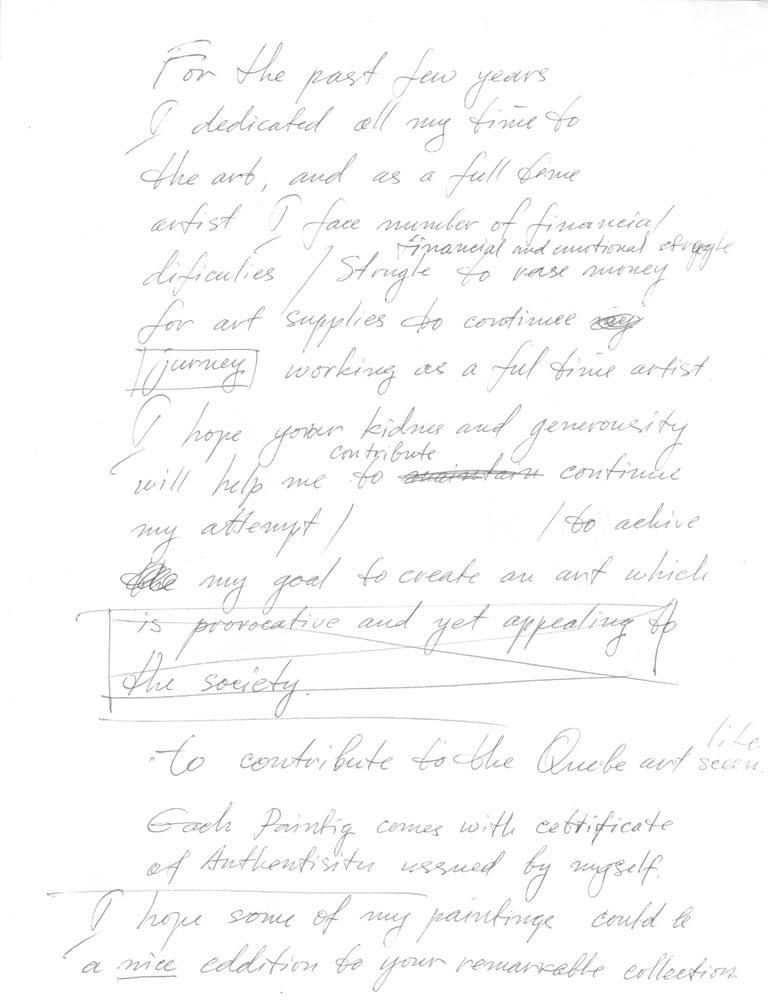 For the past few years
I dedicated all my time to
the art, and as a full time
artist I face number of financial
financial and emotional strggle
dificulies / Strugle to rase money
for art supplies to continue
jurney working as a ful time artist
I hope your kidnes and generousity
contribute
will help me to maintain continue
my attempt / / to achive
my goal to create an art which
is provocative and yet appealing to
the society.
life
to contribute to the Quebe art sceen.
Each Paintig comes with certificate
of Authentisity ussued by myself.
I hope some of my paintings could be
a nice eddition to your remarkable collection